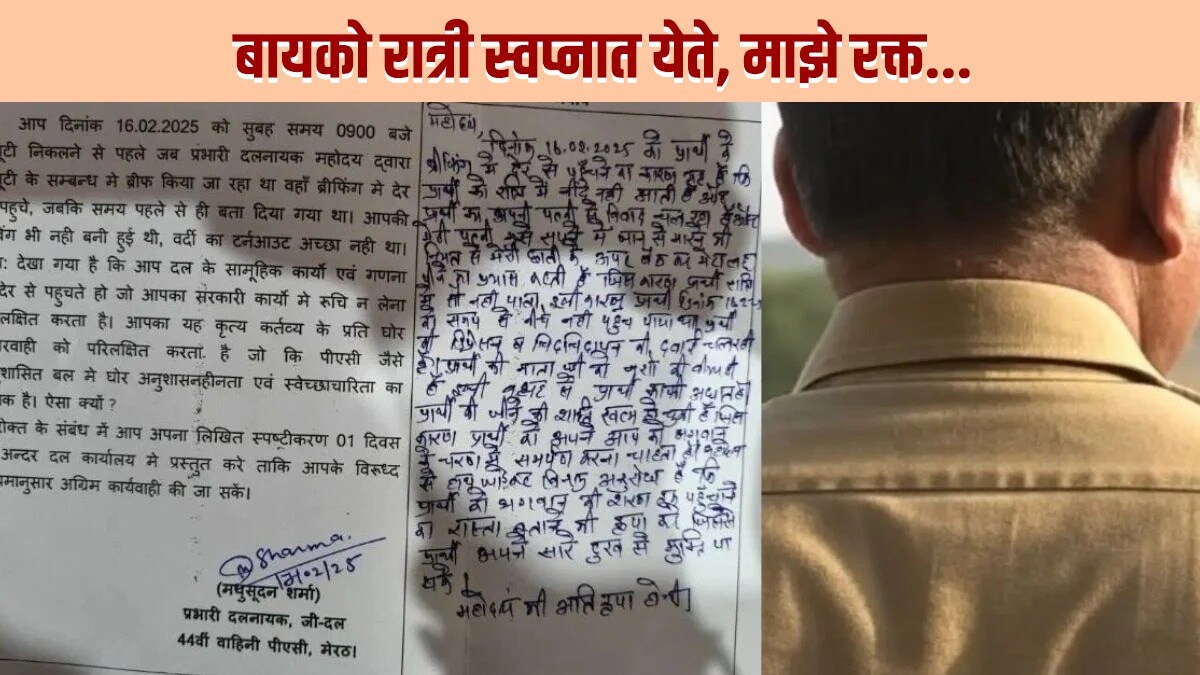 बायको रात्री स्वप्नात येते, माझे रक्त...
आप दिनांक 16.02.2025 को सुबह समय 0900 बजे
यूटी निकलने से पहले जब प्रभारी दलनायक महोदय द्वारा
यूटी के सम्बन्ध मे ब्रीफ किया जा रहा था वहाँ ब्रीफिंग मे देर
पहुचे, जबकि समय पहले से ही बता दिया गया था। आपकी
िंग भी नही बनी हुई थी, वर्दी का टर्नआउट अच्छा नही था।
: देखा गया है कि आप दल के सामूहिक कार्यो एवं गणना
देर से पहुचते हो जो आपका सरकारी कार्यो मे रुचि न लेना
लक्षित करता है। आपका यह कृत्य कर्तव्य के प्रति घोर
रवाही को परिलक्षित करता है जो कि पीएसी जैसे
ुशासित बल मे घोर अनुशासनहीनता एवं स्वेच्छाचारिता का
क है। ऐसा क्यों ?
रोक्त के संबंध में आप अपना लिखित स्पष्टीकरण 01 दिवस
अन्दर दल कार्यालय मे प्रस्तुत करे ताकि आपके विरूध्द
यमानुसार अग्रिम कार्यवाही की जा सकें।
Sharma
(मधुसूदन शर्मा)
प्रभारी दलनायक, जी-दल
44वीं वाहिनी पीएसी, मेरठ।
महोदय,
दिनांक 16.02.2025 को प्रार्थी के
ब्रीफिंग में देर से पहुँचने का कारण यह है कि
प्रार्थी को रात्रि में नींद नही आती है
प्रार्थी का अपनी पत्नी से विवाद चल रहा है
मेरी पत्नी मुझे सपने में जान से मारने की
से मेरी छाती के ऊपर बैठ कर मेरा लहू
पीने का प्रयास करती है जिस कारण प्रार्थी रात्रि
में सो नही पाता, इसी कारण प्रार्थी दिनांक
को समय से नही पहुच पाया था प्रार्थी
की डिप्रेशन व चिडचिडापन की दवाई चल रही
है। प्रार्थी की माता जी को नशो की बीमारी
है से प्रार्थी काफी
प्रार्थी की जीने की खत्म हो चुकी है जिस
कारण प्रार्थी को अपने आप को भगवान
के चरण में समर्पण करना चाहता है
से अनुरोध है कि
प्रार्थी को भगवान की शरण पहुँचने
का रास्ता बताने की कृपा करे जिससे
प्रार्थी अपने सारे दुख से मुक्ति पा
सके।
महोदय की अति कृपा होगी।